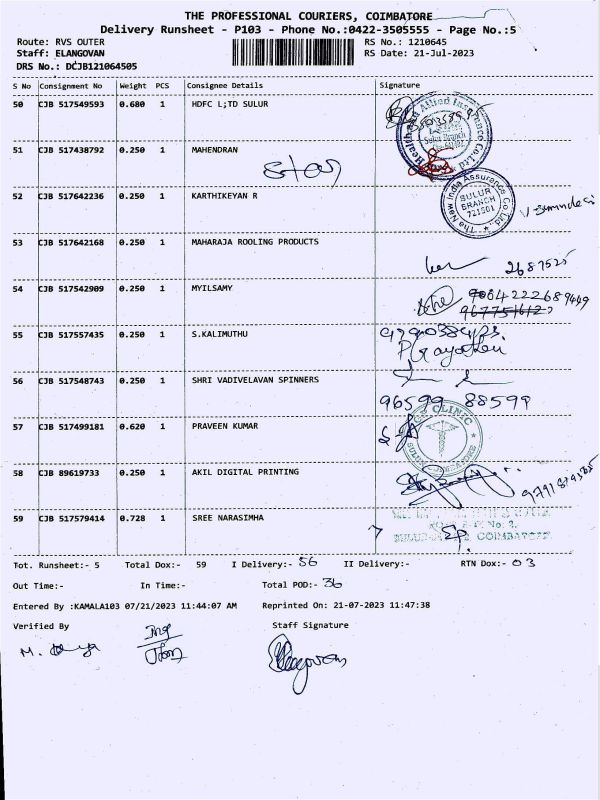 THE PROFESSIONAL COURIERS, COIMBATORE
Delivery Runsheet - P103 - Phone No.:0422-3505555 - Page No.:5
Route: RVS OUTER RS No.: 1210645
Staff: ELANGOVAN RS Date: 21-Jul-2023
DRS No.: DCJB121064505
S No Consignment No Weight PCS Consignee Details Signature
50 CJB 517549593 0.680 1 HDFC L;TD SULUR
51 CJB 517438792 0.250 1 MAHENDRAN
52 CJB 517642236 0.250 1 KARTHIKEYAN R
The New India Assurance Co Ltd
SULUR
BRANCH
721501
53 CJB 517642168 0.250 1 MAHARAJA ROOLING PRODUCTS
2687525
54 CJB 517542909 0.250 1 MYILSAMY
55 CJB 517557435 0.250 1 S.KALIMUTHU
56 CJB 517548743 0.250 1 SHRI VADIVELAVAN SPINNERS
96599 88599
57 CJB 517499181 0.620 1 PRAVEEN KUMAR
CLINIC
58 CJB 89619733 0.250 1 AKIL DIGITAL PRINTING
59 CJB 517579414 0.728 1 SREE NARASIMHA
COIMBATORE
Tot. Runsheet:- 5 Total Dox:- 59 I Delivery:- 56 II Delivery:- RTN Dox:- 03
Out Time:- In Time:- Total POD:- 36
Entered By :KAMALA103 07/21/2023 11:44:07 AM Reprinted On: 21-07-2023 11:47:38
Verified By Staff Signature